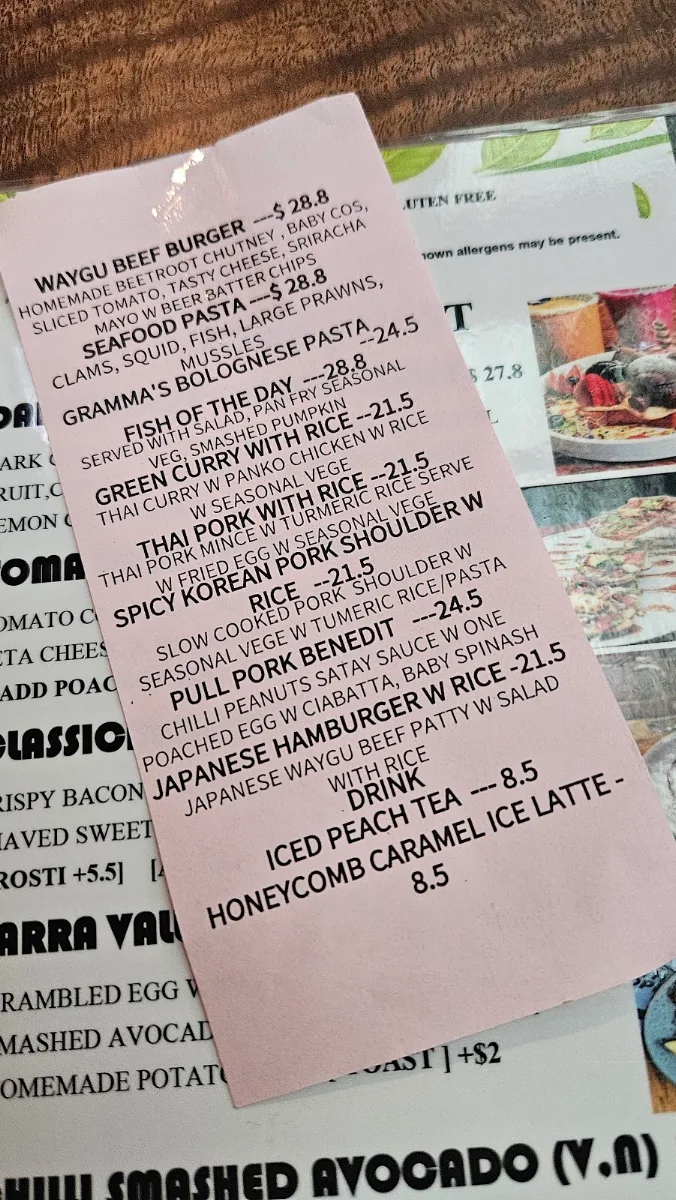 WAYGU BEEF BURGER ---$ 28.8
HOMEMADE BEETROOT CHUTNEY , BABY COS,
SLICED TOMATO, TASTY CHEESE, SRIRACHA
MAYO W BEER BATTER CHIPS
SEAFOOD PASTA ---$ 28.8
CLAMS, SQUID, FISH, LARGE PRAWNS,
MUSSLES
GRAMMA'S BOLOGNESE PASTA --24.5
FISH OF THE DAY ---28.8
SERVED WITH SALAD, PAN FRY SEASONAL
VEG, SMASHED PUMPKIN
GREEN CURRY WITH RICE --21.5
THAI CURRY W PANKO CHICKEN W RICE
W SEASONAL VEGE
THAI PORK WITH RICE --21.5
THAI PORK MINCE W TURMERIC RICE SERVE
W FRIED EGG W SEASONAL VEGE
SPICY KOREAN PORK SHOULDER W
RICE --21.5
SLOW COOKED PORK SHOULDER W
SEASONAL VEGE W TUMERIC RICE/PASTA
PULL PORK BENEDIT ---24.5
CHILLI PEANUTS SATAY SAUCE W ONE
POACHED EGG W CIABATTA, BABY SPINASH
JAPANESE HAMBURGER W RICE -21.5
JAPANESE WAYGU BEEF PATTY W SALAD
WITH RICE
DRINK
ICED PEACH TEA --- 8.5
HONEYCOMB CARAMEL ICE LATTE -
8.5
UTEN FREE
nown allergens may be present.
T
$ 27.8
L
ARK
RUIT,C
EMON
OMA
OMATO C
ETA CHEES
ADD POAC
CLASSIC
RISPY BACON
HAVED SWEET
ROSTI +5.5] [
ARRA VAL
RAMBLED EGG W
MASHED AVOCAD
OMEMADE POTATO
OAST ] +$2
HILLI SMASHED AVOCADO (V.N)